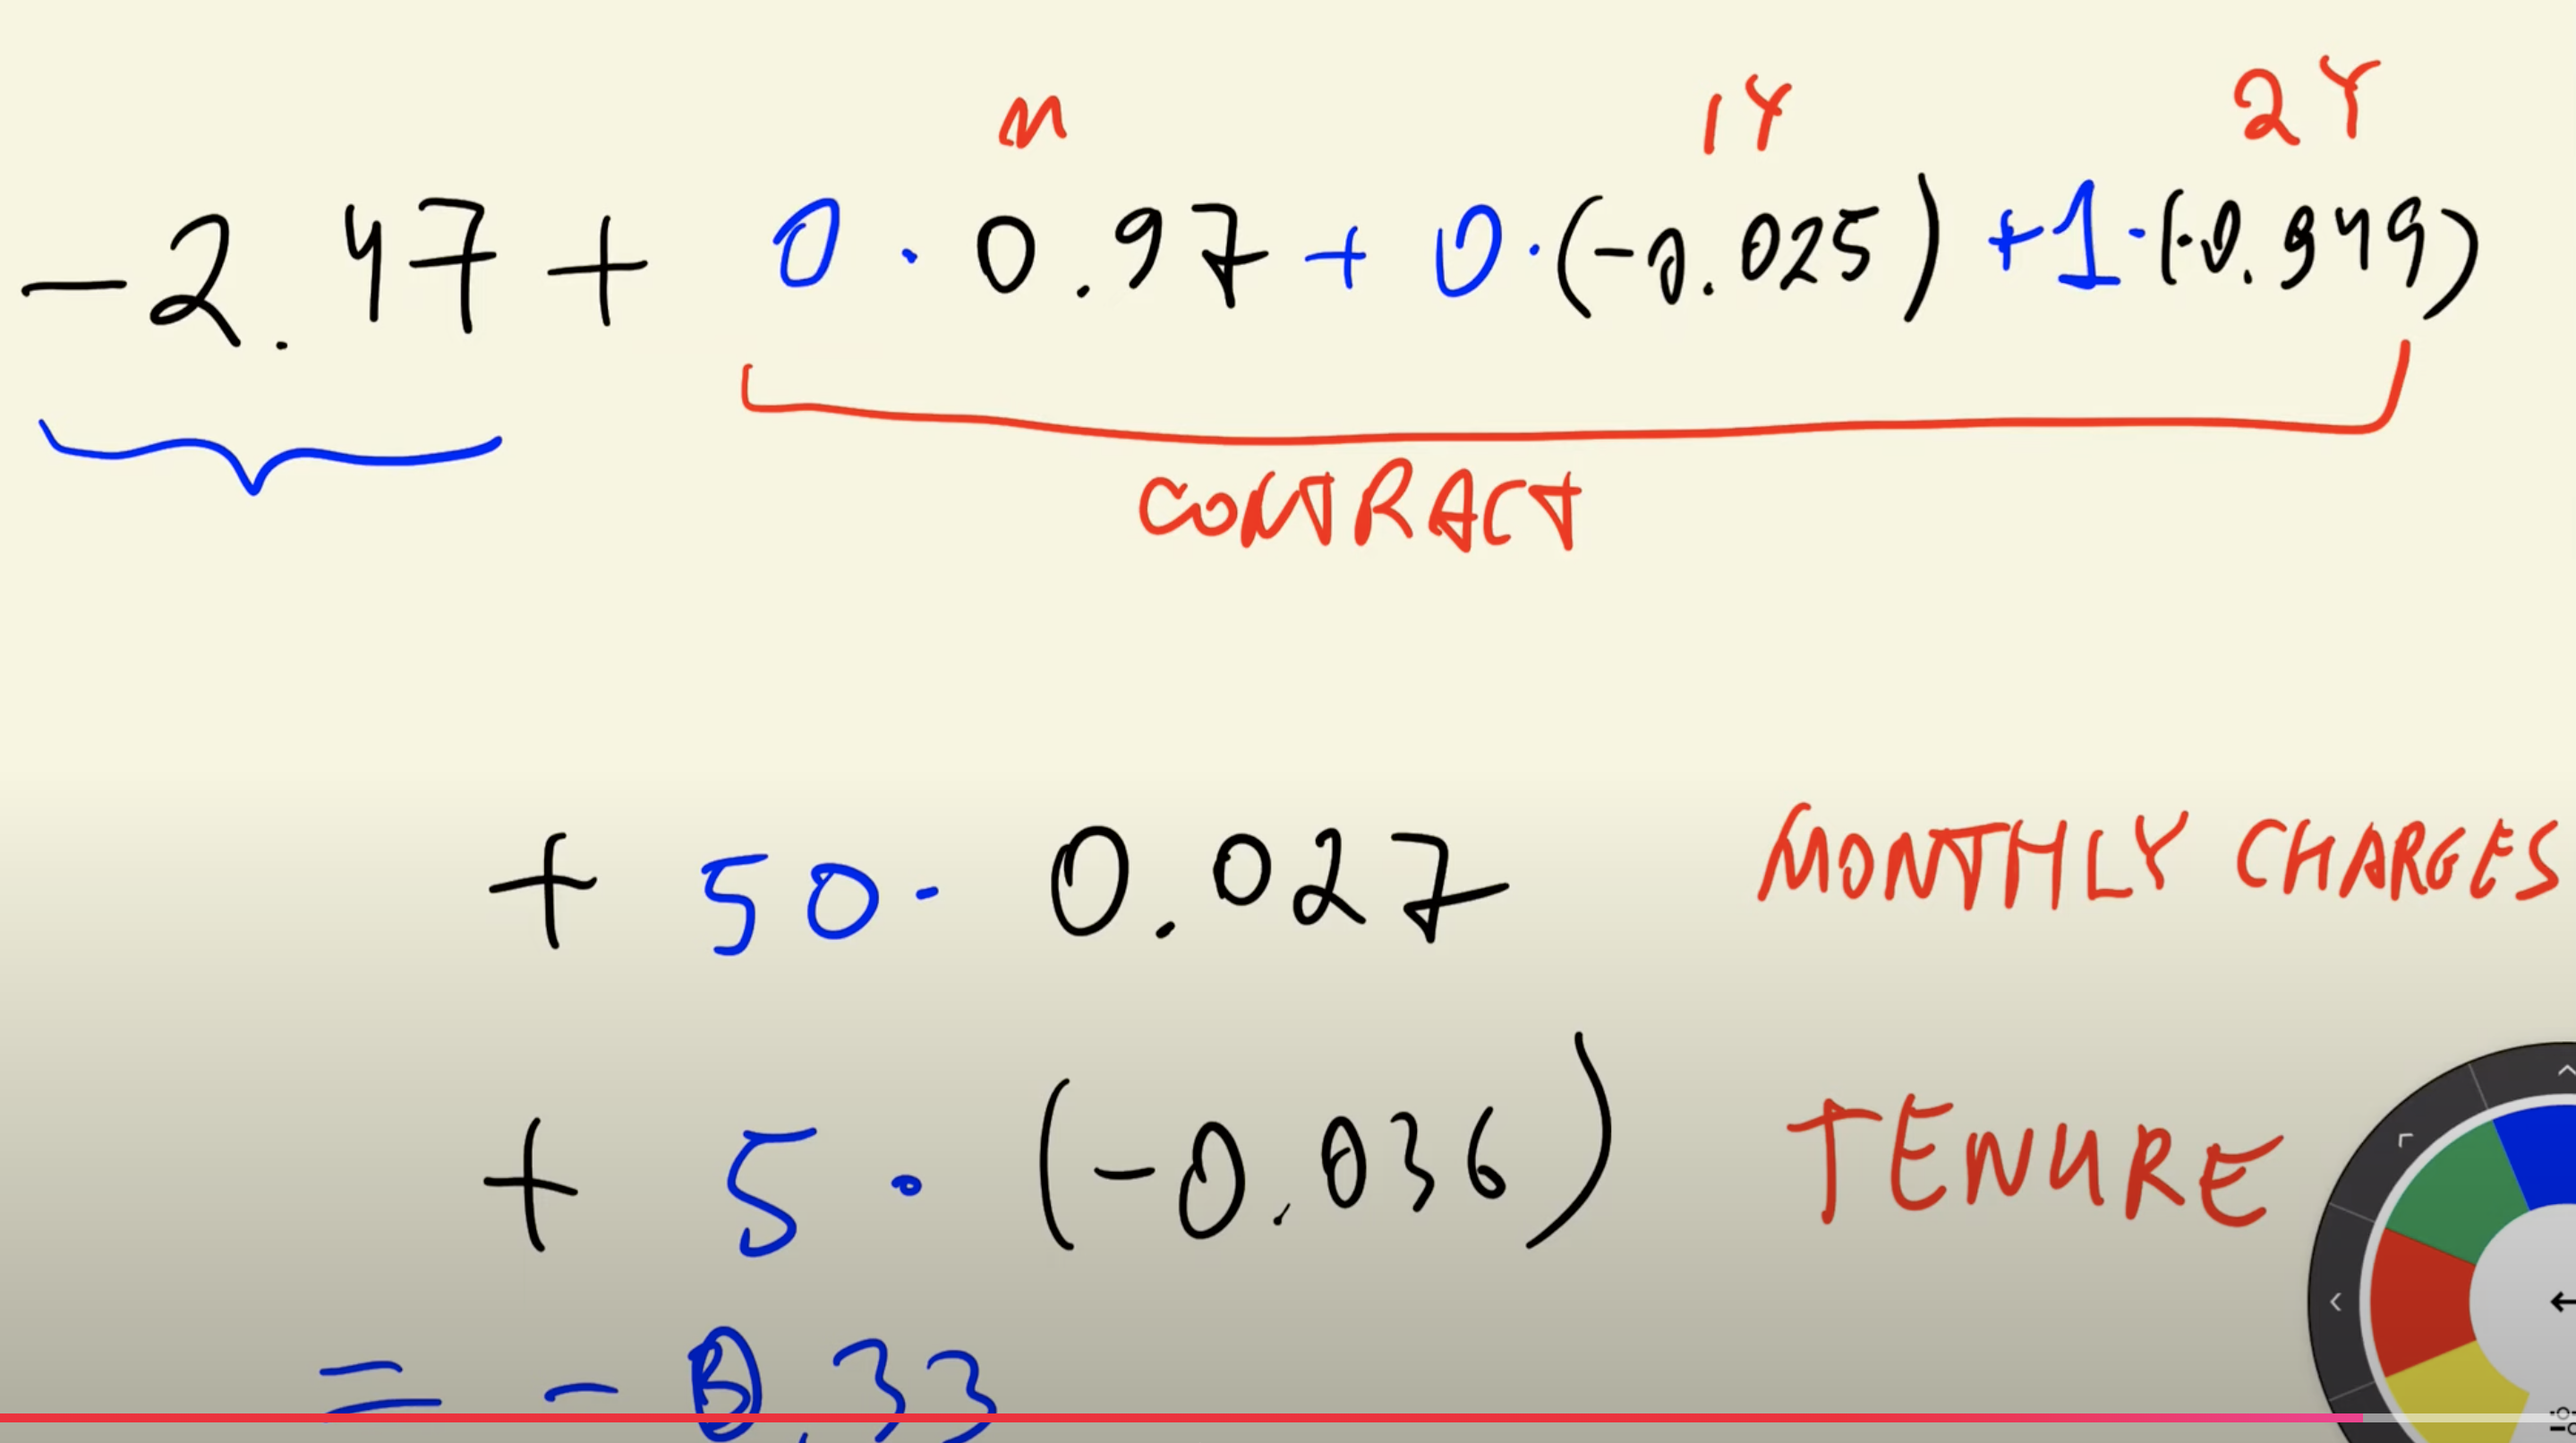 M 1Y 2Y
-2.47 + 0 · 0.97 + 0 · (-0.025) +1 · (-0.949)
CONTRACT
+ 50 · 0.027 MONTHLY CHARGES
+ 5 · (-0.036) TENURE
= - 0,33